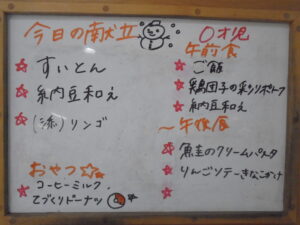 今日の献立
☆ すいとん
☆ 納豆和え
☆ (添)リンゴ
おやつ☆
☆ コーヒーミルク、
てづくりドーナツ
〇才児
午前食
☆ ご飯
☆ 鶏団子の彩りポトフ
☆ 納豆和え
〜午後食
☆ 鮭のクリームパスタ
☆ りんごソテーきなこがけ
☆